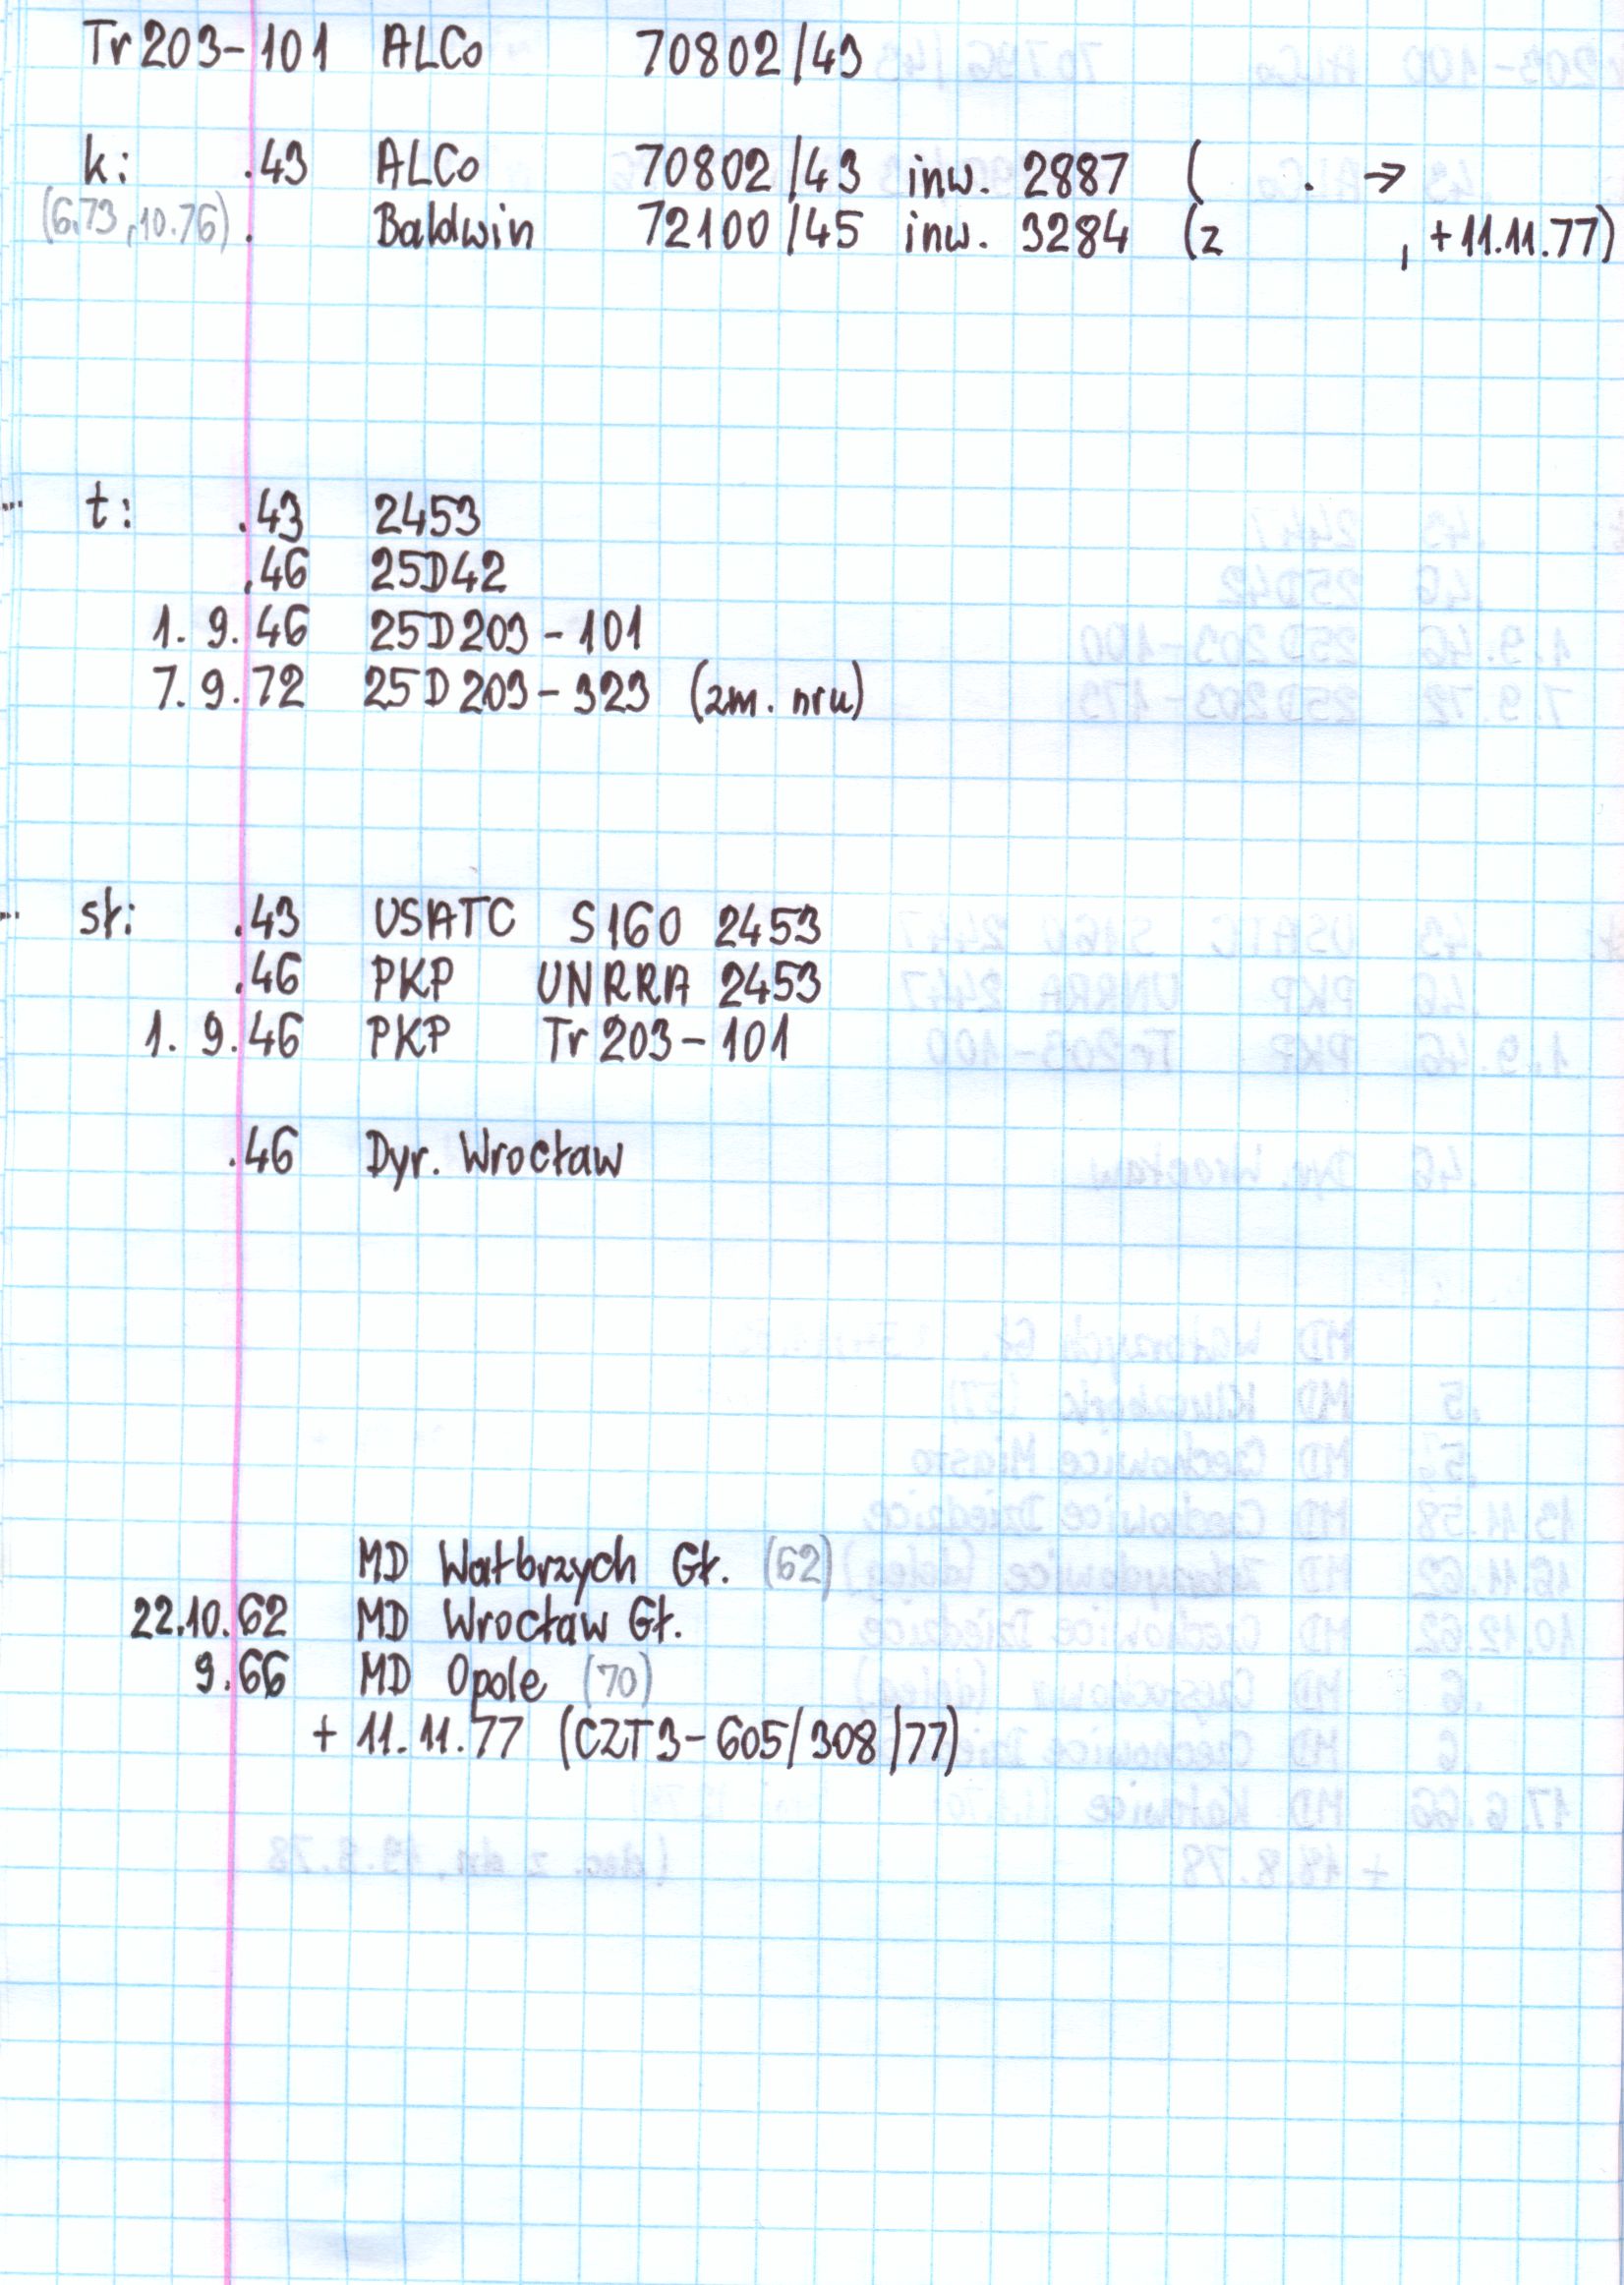 Tr 203-101 ALCo 70802/43
k: .43 ALCo 70802/43 inw. 2887 ( . →
(6.73, 10.76) . Baldwin 72100/45 inw. 3284 (z , +11.11.77)
t: .43 2453
.46 25D42
1. 9. 46 25D203-101
7. 9. 72 25D203-323 (zm. nru)
sł: .43 USATC S160 2453
.46 PKP UNRRA 2453
1. 9. 46 PKP Tr 203-101
.46 Dyr. Wrocław
MD Wałbrzych Gł. (62)
22.10.62 MD Wrocław Gł.
9.66 MD Opole (70)
+ 11.11.77 (CZT3-605/308/77)